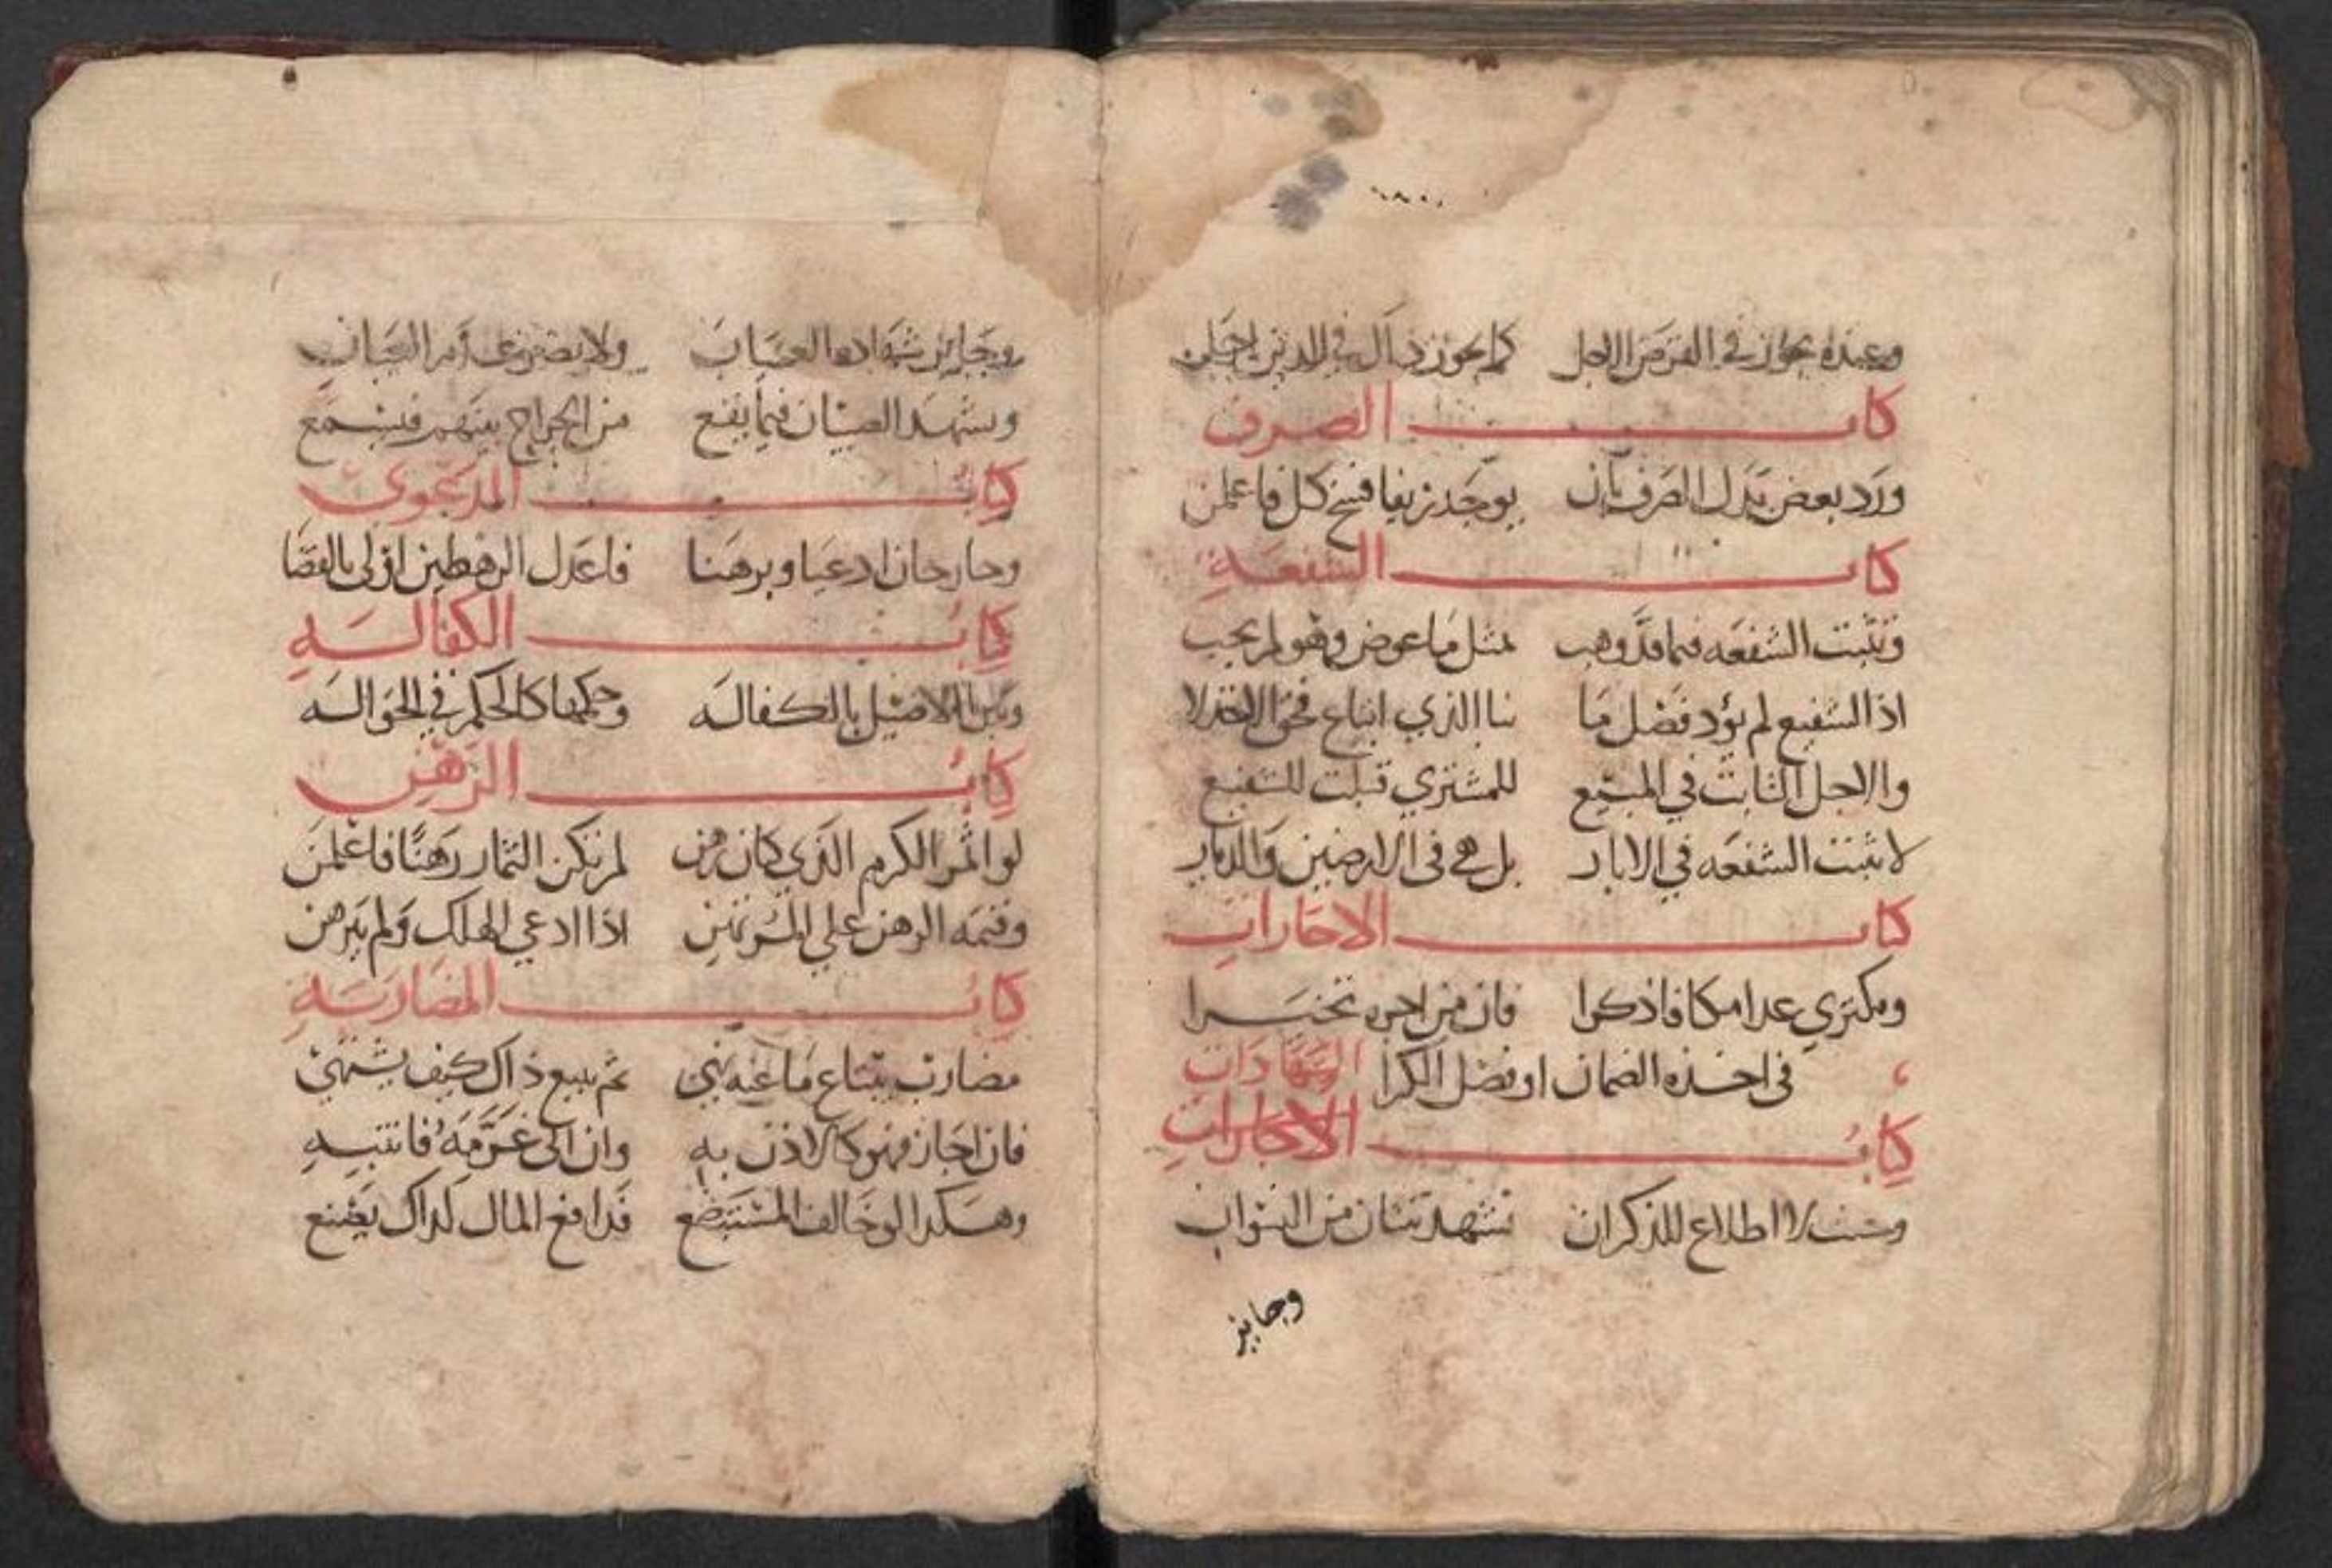 وعنده يجوز في القرض الاجل كما يجوز ذاك في الدين اجلن
كتاب الصرف
ورد بعض بدل الصرف بان يوجد زيفا فسخ كل فاعلمن
كتاب الشفعة
وتثبت الشفعه فيما قد وهب بمثل ما عوض وهو لم يجب
اذا الشفيع لم يؤد فضل ما بنا الذي ابتاع فحق
والاجل الثابت في المبيع للمشتري للشفيع
لا تثبت الشفعه في الابار بل هي في الارضين والديار
كتاب الاجارات
ومكتري عدا مكانا ذكرا فان من اجره تخيرا
في اخذه الضمان او فضل الكرا
الشهادات
كتاب الاجارات
لا اطلاع للذكران تشهد ثنتان من النسوان
وجايز
وجايز شهادة العميان ولا
ويشهد الصبيان فيما يقع من الجراح بينهم فيسمع
كتاب الدعوى
وخارجان ادعيا وبرهنا فاعدل الرهطين اولى بالقضا
كتاب الكفالة
الاصيل بالكفاله وحكمها كالحكم في الحواله
كتاب الرهن
لو اثمر الكرم الذي كان رهن لم تكن الثمار رهنا فاعلمن
وقيمه الرهن على المرتهن اذا ادعي الهلك ولم يبرهن
كتاب المضاربة
مضارب يبتاع ما عنه نهي ثم يبيع ذاك كيف يشتهي
فان اجاز فهو كالاذن به وان ابى غرمه فانتبه
وهكذا لو خالف المستبضع فدافع المال كذاك يصنع